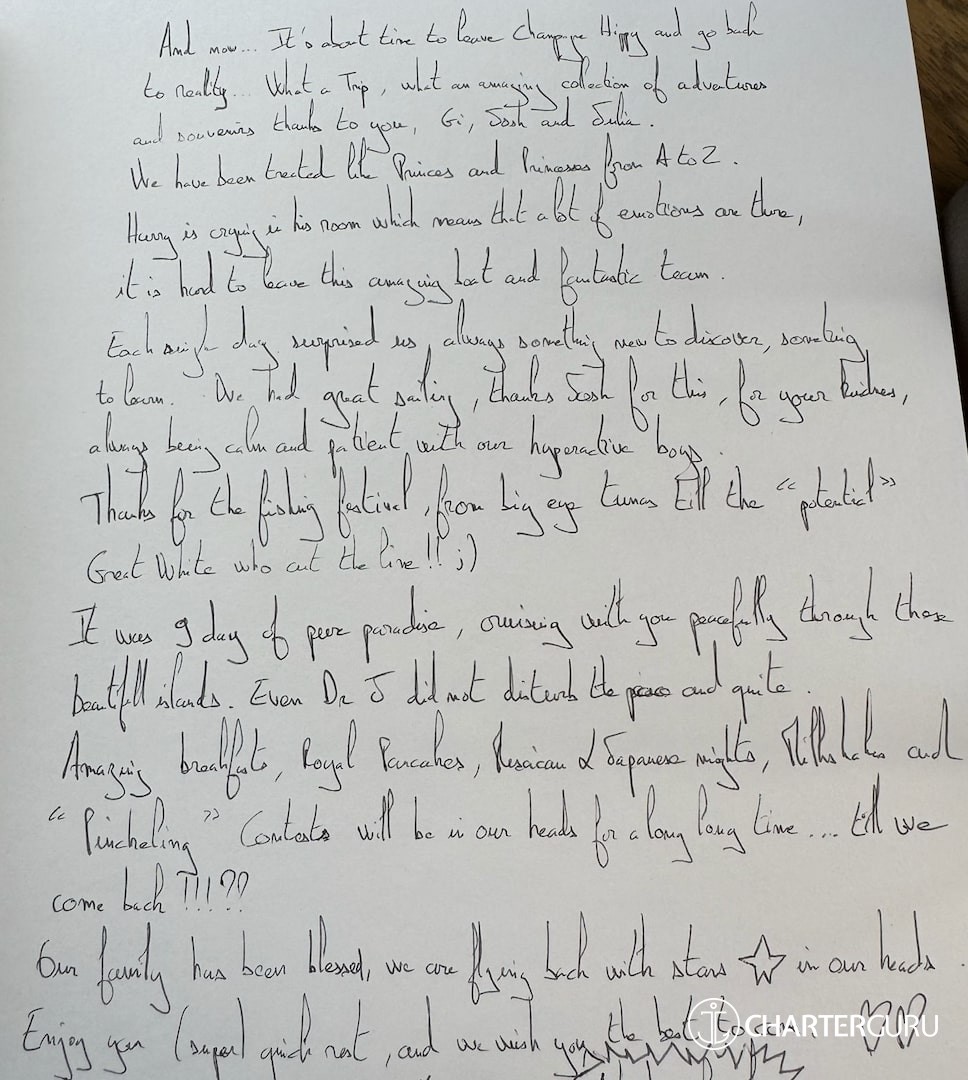 And now... It's about time to leave Champagne Hippy and go back
to reality... What a Trip, what an amazing collection of adventures
and souvenirs thanks to you, Gi, Josh and Julia.
We have been treated like Princes and Princesses from A to Z.
Harry is crying in his room which means that a lot of emotions are there,
it is hard to leave this amazing boat and fantastic team.
Each single day surprised us, always something new to discover, something
to learn. We had great sailing, thanks Josh for this, for your kindness,
always being calm and patient with our hyperactive boys.
Thanks for the fishing festival, from big eye tunas till the "potential"
Great White who cut the line!! ;)
It was 9 day of peer paradise, cruising with you peacefully through these
beautifull islands. Even Dr J did not disturb the peace and quite.
Amazing breakfasts, Royal Pancakes, Mexican & Japanese nights, Milkshakes and
" " Contests will be in our heads for a long long time.... till we
come back !!!??
Our family has been blessed, we are flying back with stars ☆ in our heads.
Enjoy your (super) quick rest, and we wish you the best to come ♡♡
CHARTERGURU